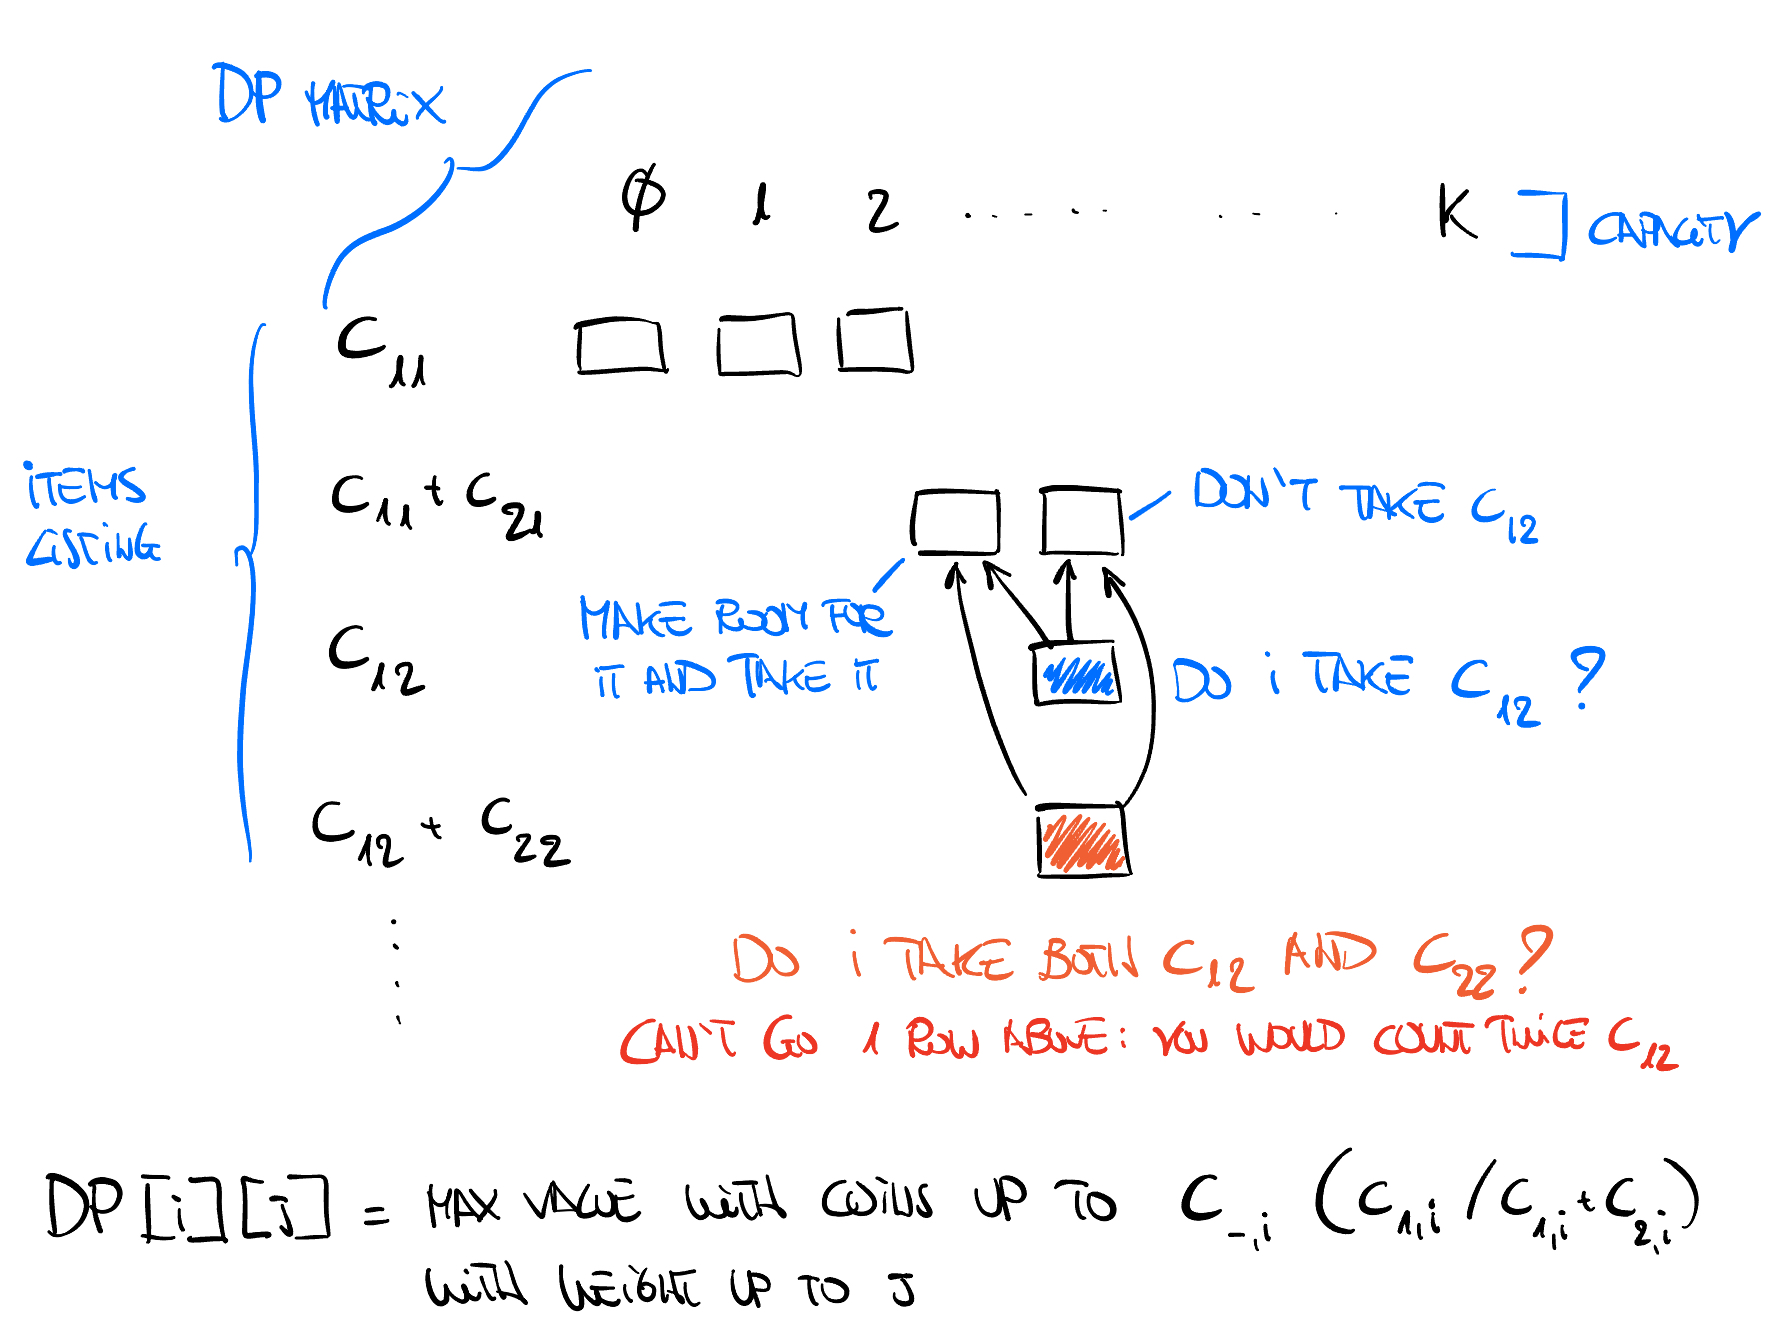 DP MATRiX
Ø 1 2 ..... ... K ] CAPACITY
C11
ITEMS LISTING
C11 + C21
DON'T TAKE C12
MAKE ROOM FOR
IT AND TAKE IT
C12
DO i TAKE C12 ?
C12 + C22
DO i TAKE BOTH C12 AND C22 ?
CAN'T GO 1 ROW ABOVE: YOU WOULD COUNT TWICE C12
DP[i][j] = MAX VALUE WITH COINS UP TO C-,i (C1,i / C1,i + C2,i)
WITH WEIGHT UP TO J